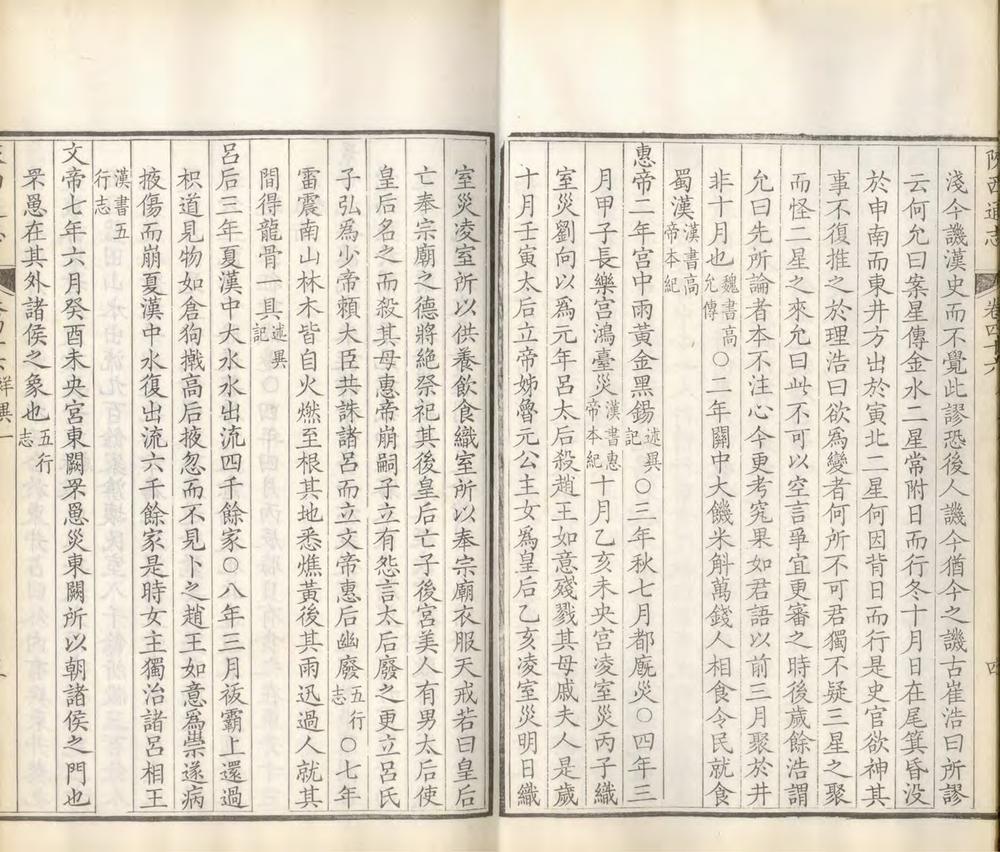 陝西通志 卷四十六 四
淺今譏漢史而不覺此謬恐後人譏今猶今之譏古崔浩曰所謬
云何允曰案星傳金水二星常附日而行冬十月日在尾箕昏没
於申南而東井方出於寅北二星何因背日而行是史官欲神其
事不復推之於理浩曰欲為變者何所不可君獨不疑三星之聚
而怪二星之來允曰此不可以空言爭宜更審之時後歲餘浩謂
允曰先所論者本不注心今更考究果如君語以前三月聚於井
非十月也魏書高允傳○二年關中大饑米斛萬錢人相食令民就食
蜀漢漢書高帝本紀
惠帝二年宫中雨黄金黑錫述異記○三年秋七月都廐災○四年三
月甲子長樂宫鴻臺災漢書惠帝本紀十月乙亥未央宫凌室災丙子織
室災劉向以為元年呂太后殺趙王如意殘戮其母戚夫人是歲
十月壬寅太后立帝姊魯元公主女為皇后乙亥凌室災明日織
室災凌室所以供養飲食織室所以奉宗廟衣服天戒若曰皇后
亡奉宗廟之德將絶祭祀其後皇后亡子後宮美人有男太后使
皇后名之而殺其母惠帝崩嗣子立有怨言太后廢之更立呂氏
子弘為少帝賴大臣共誅諸呂而立文帝惠后幽廢五行志○七年
雷震南山林木皆自火燃至根其地悉燋黄後其雨迅過人就其
間得龍骨一具述異記
呂后三年夏漢中大水水出流四千餘家○八年三月祓霸上還過
枳道見物如倉狗撠高后掖忽而不見卜之趙王如意為祟遂病
掖傷而崩夏漢中水復出流六千餘家是時女主獨治諸呂相王
漢書五行志
文帝七年六月癸酉未央宮東闕罘罳災東闕所以朝諸侯之門也
罘罳在其外諸侯之象也五行志
祥異一